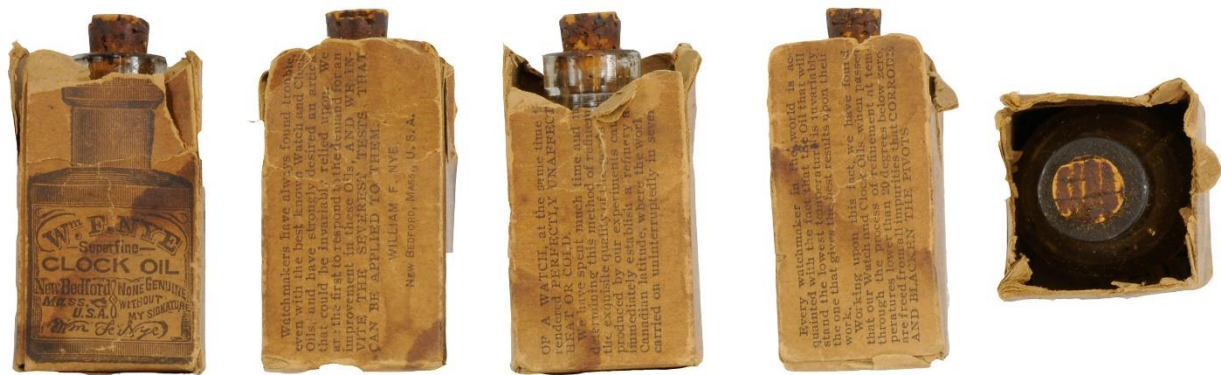 Wm. F. NYE
Superfine
CLOCK OIL
New Bedford
Mass.
U.S.A.
NONE GENUINE
WITHOUT
MY SIGNATURE
Wm F. Nye
Watchmakers have always found trouble,
even with the best known Watch and Clock
Oils, and have strongly desired an article
that could be invariably relied upon. We
are the first to respond to the demand for an
improvement in these Oils AND WE IN-
VITE THE SEVEREST TESTS THAT
CAN BE APPLIED TO THEM.
WILLIAM F. NYE,
NEW BEDFORD, MASS., U. S. A.
OF A WATCH, at the same time
rendered PERFECTLY UNAFFECT
HEAT OR COLD.
We have spent much time and m
determining this method of refining
the exquisite quality of the
produced by our experiments
immediately establish a refinery a
Canadian latitude, where the work
carried on uninterruptedly in seve
Every watchmaker in the world is ac-
quainted with the fact that the Oil that will
stand the lowest temperature is invariably
the one that gives the best results upon their
work.
Working upon this fact, we have found
that our Watch and Clock Oils, when passed
through the process of refinement at tem-
peratures lower than 20 degrees below zero,
are freed from all impurities that CORRODE
AND BLACKEN THE PIVOTS